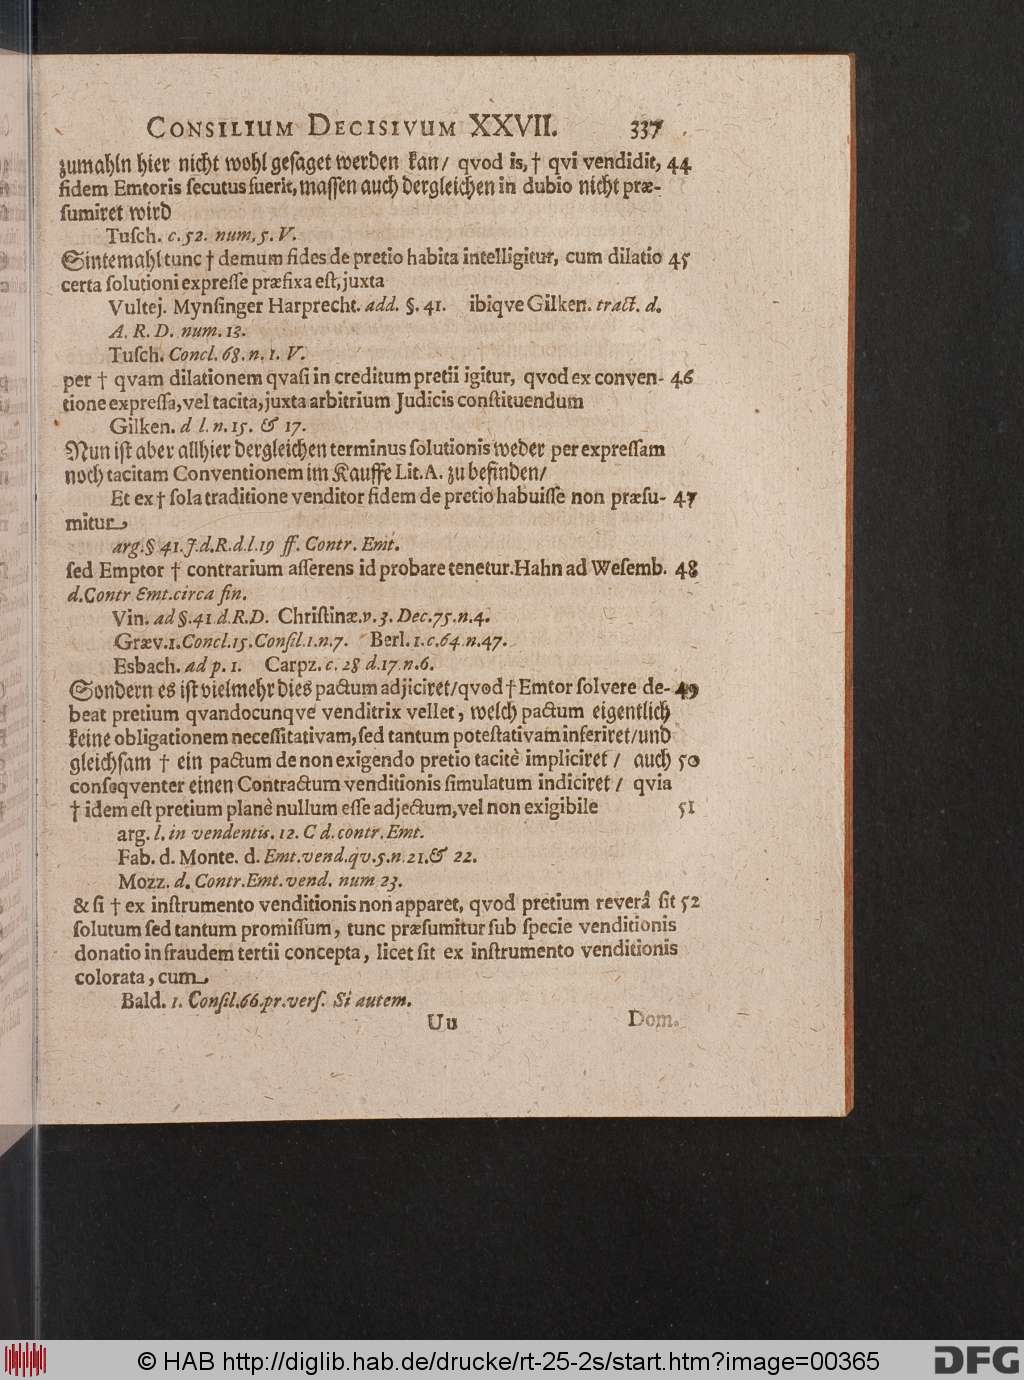 CONSILIUM DECISIVUM XXVII. 337
zumahln hier nicht wohl gesaget werden kan/ qvod is, † qvi vendidit, 44
fidem Emtoris secutus fuerit, massen auch dergleichen in dubio nicht præ-
sumiret wird
Tusch. c. 52. num. 5. V.
Sintemahl tunc † demum fides de pretio habita intelligitur, cum dilatio 45
certa solutioni expresse præfixa est, juxta
Vultej. Mynsinger Harprecht. add. §. 41. ibiqve Gilken. tract. d.
A. R. D. num. 13.
Tusch. Concl. 68. n. 1. V.
per † qvam dilationem qvasi in creditum pretii igitur, qvod ex conven- 46
tione expressa, vel tacita, juxta arbitrium Judicis constituendum
Gilken. d l. n. 15. & 17.
Nun ist aber allhier dergleichen terminus solutionis weder per expressam
noch tacitam Conventionem im Kauffe Lit. A. zu befinden/
Et ex † sola traditione venditor fidem de pretio habuisse non præsu- 47
mitur
arg. § 41. J. d. R. d. l. 19 ff. Contr. Emt.
sed Emptor † contrarium asserens id probare tenetur. Hahn ad Wesemb. 48
d. Contr Emt. circa fin.
Vin. ad §. 41 d. R. D. Christinæ. v. 3. Dec. 75. n. 4.
Græv. 1. Concl. 15. Consil. 1. n. 7. Berl. 1. c. 64. n. 47.
Esbach. ad p. 1. Carpz. c. 28 d. 17. n. 6.
Sondern es ist vielmehr dies pactum adjiciret/ qvod † Emtor solvere de- 49
beat pretium qvandocunqve venditrix vellet, welch pactum eigentlich
keine obligationem necessitativam, sed tantum potestativam inferiret/ und
gleichsam † ein pactum de non exigendo pretio tacitè impliciret / auch 50
conseqventer einen Contractum venditionis simulatum indiciret / qvia
† idem est pretium planè nullum esse adjectum, vel non exigibile 51
arg. l. in vendentis. 12. C d. contr. Emt.
Fab. d. Monte. d. Emt. vend. qv. 5. n. 21. & 22.
Mozz. d. Contr. Emt. vend. num 23.
& si † ex instrumento venditionis non apparet, qvod pretium reverâ sit 52
solutum sed tantum promissum, tunc præsumitur sub specie venditionis
donatio in fraudem tertii concepta, licet sit ex instrumento venditionis
colorata, cum
Bald. 1. Consil. 66. pr. vers. Si autem.
Uu Dom.
© HAB http://diglib.hab.de/drucke/rt-25-2s/start.htm?image=00365
DFG